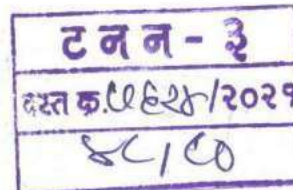 ट न न - ३
दस्त क्र. ७६२४/२०२१
४८/८०